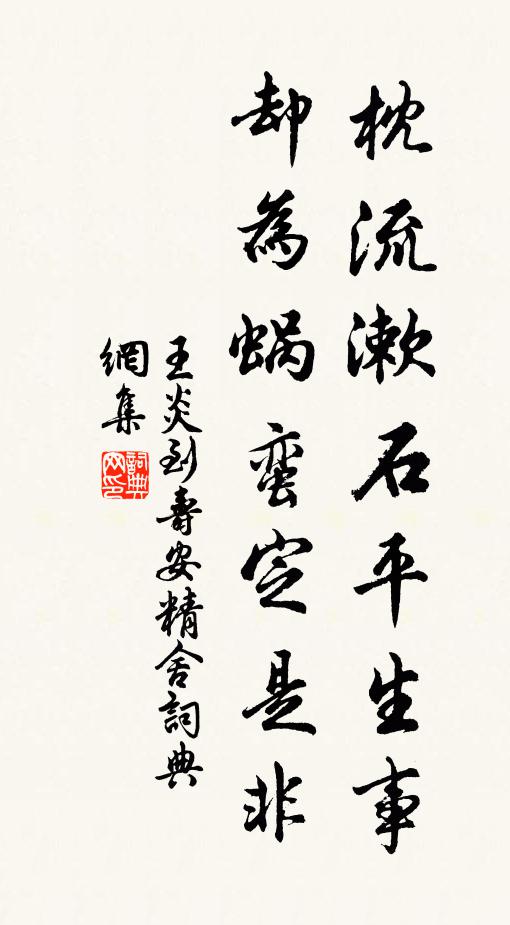 枕流漱石平生事
却為蝸蛮定是非
王炎到壽安精舍詞典
網集
詞典网印